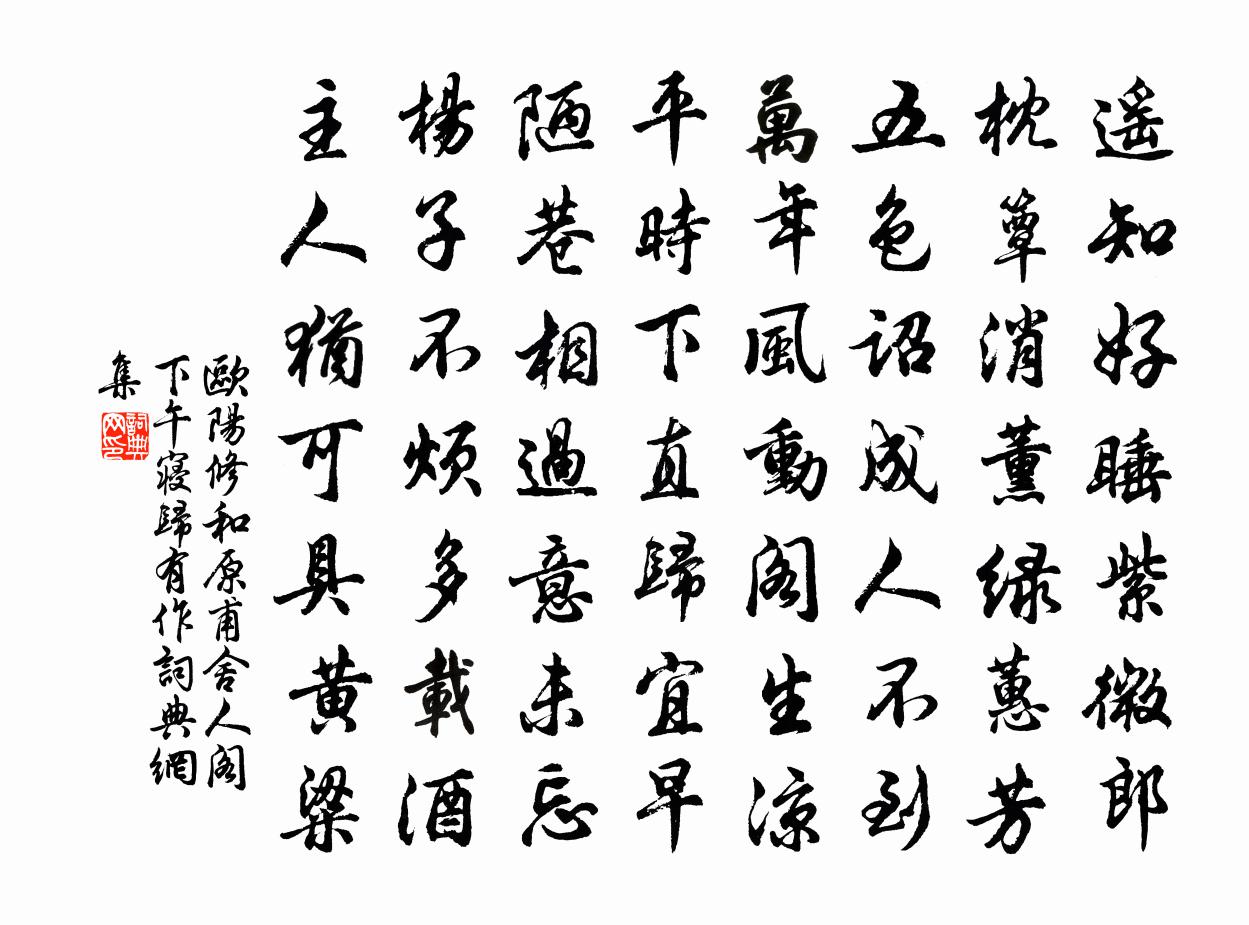 遥知好睡紫微郎
枕簟消薰绿蕙芳
五色詔成人不到
萬年風動閣生凉
平時下直歸宜早
陋巷相過意未忘
楊子不烦多載酒
主人猶可具黄粱
歐陽修和原甫舍人閣
下午寢歸有作詞典網
集
詞典网印